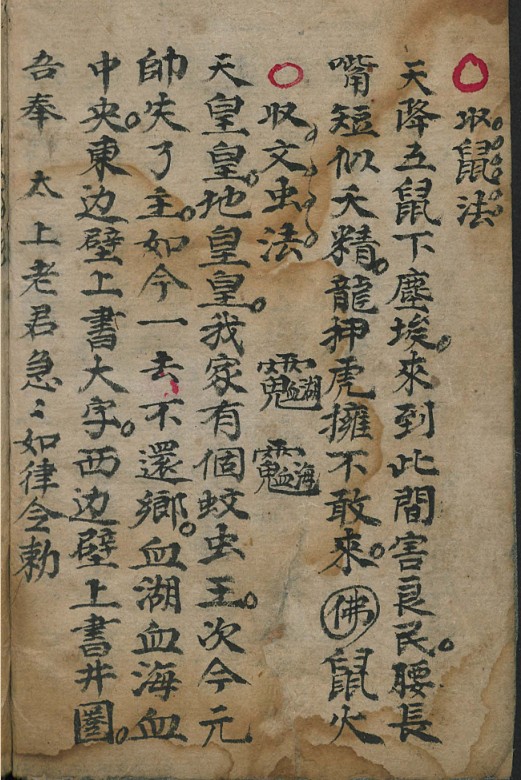 収鼠法
天降五鼠下塵埃。來到此間害良民。腰長
嘴短似夭精。龍押虎擁不敢來。佛鼠火
収文虫法
天皇皇。地皇皇。我家有個蚊虫王。次今元
帥失了主。如今一去不還鄉。血湖血海血
中央。東边壁上書大字。西边壁上書井圈。
吾奉 太上老君急〻如律令勅